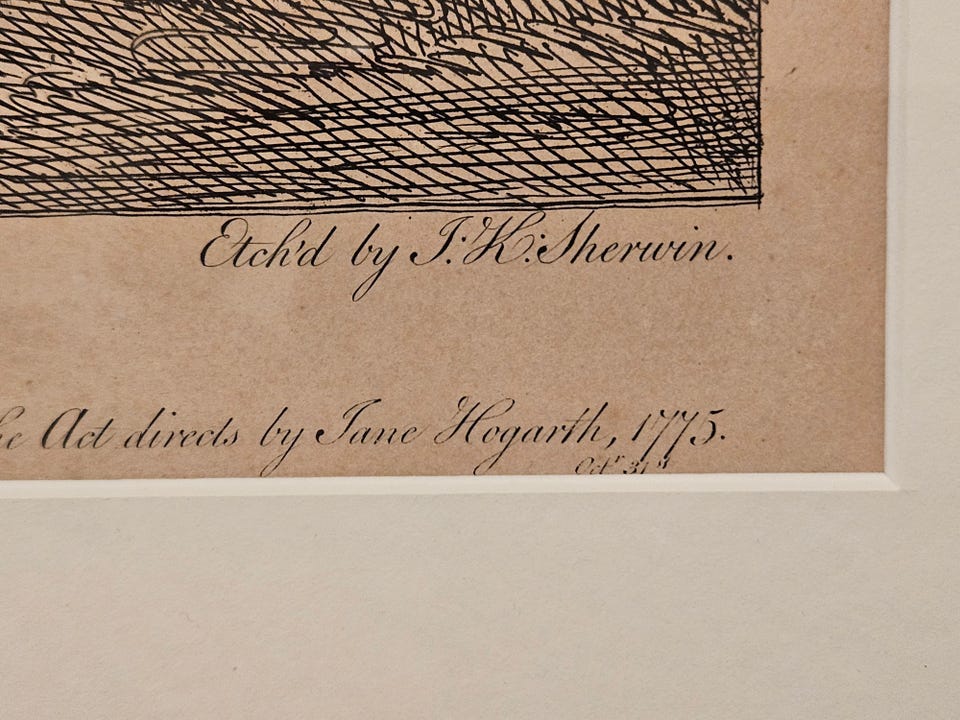 Etch'd by J: K: Sherwin.
he Act directs by Jane Hogarth, 1775.
Octr. 31st